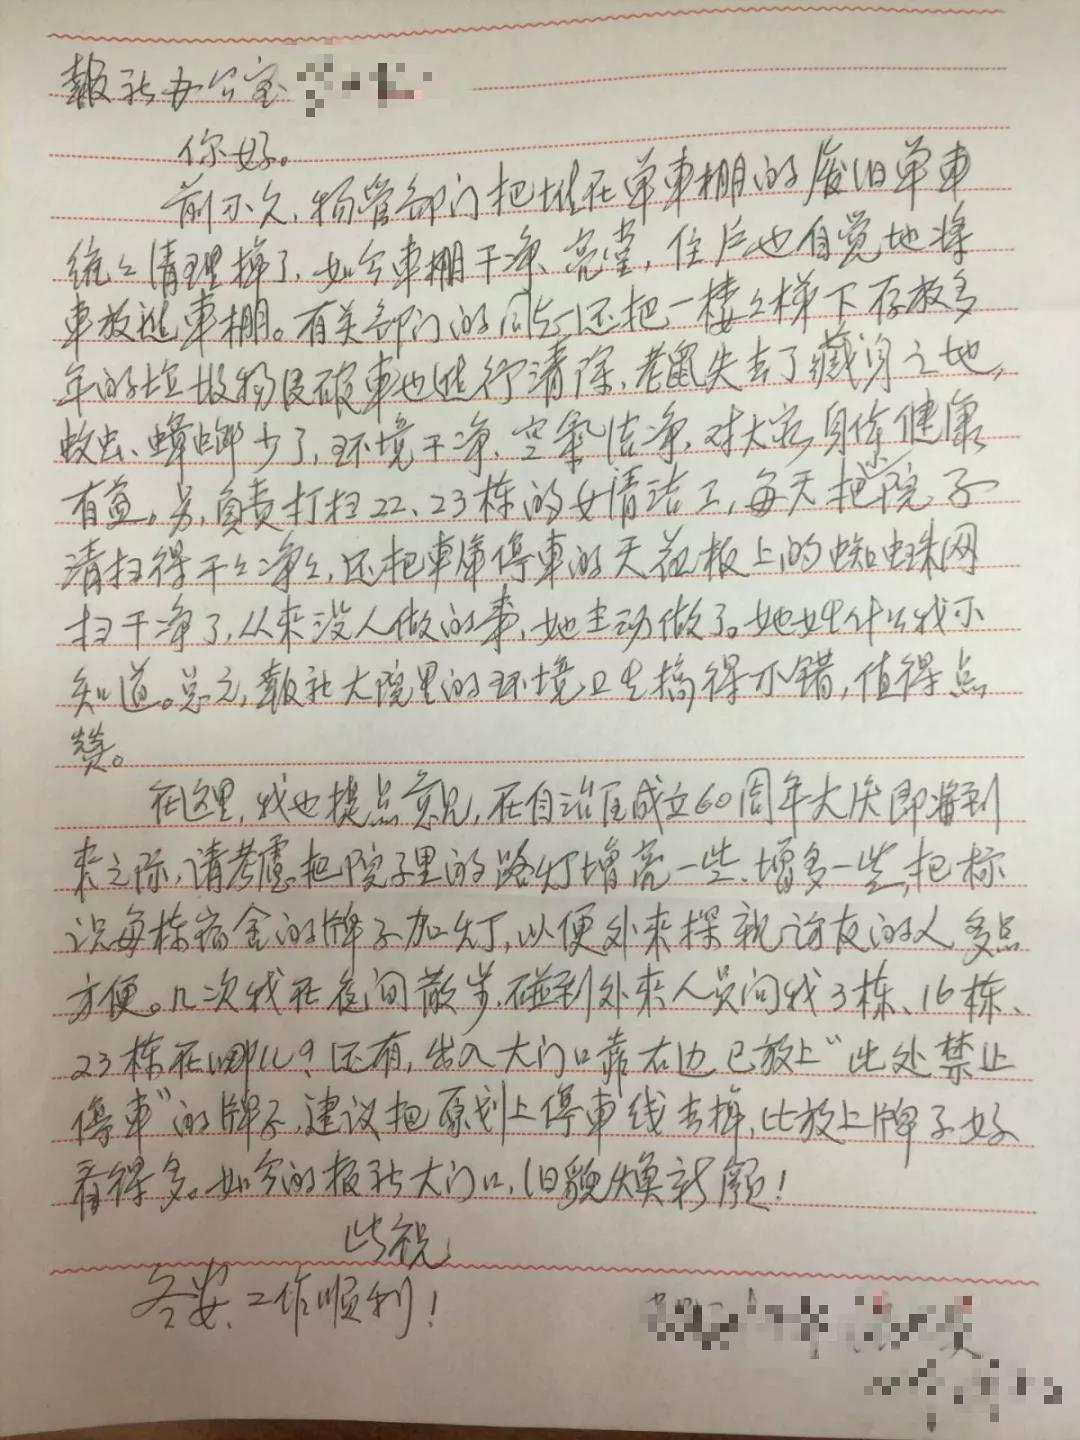 報社办公室
你好。
前不久，物管部门把堆在单車棚的废旧单車
统统清理掉了，如今車棚干净、亮堂，住户也自觉地将
車放进車棚。有关部门的同志还把一楼楼梯下存放多
年的垃圾物及破車也进行清除，老鼠失去了藏身之地，
蚊虫、蟑螂少了，环境干净、空氣洁净，对大家身体健康
有益。另，負责打扫22、23栋的女清洁工，每天把院子
清扫得干干净净，还把車庫停車的天花板上的蜘蛛网
扫干净了，从来没人做的事，她主动做了。她姓什么我不
知道。总之，報社大院里的环境卫生搞得不错，值得点
赞。
在这里，我也提点意见，在自治区成立60周年大庆即将到
来之际，请考慮把院子里的路灯增亮一些、增多一些，把标
识每栋宿舍的牌子加灯，以便外来探視访友的人多点
方便。几次我在夜间散步，碰到外来人员问我3栋、16栋、
23栋在哪儿？还有，出入大门口靠右边已放上“此处禁止
停車”的牌子，建议把原划上停車线去掉，比放上牌子好
看得多。如今的报社大门口，旧貌焕新颜！
此祝
冬安、工作顺利！